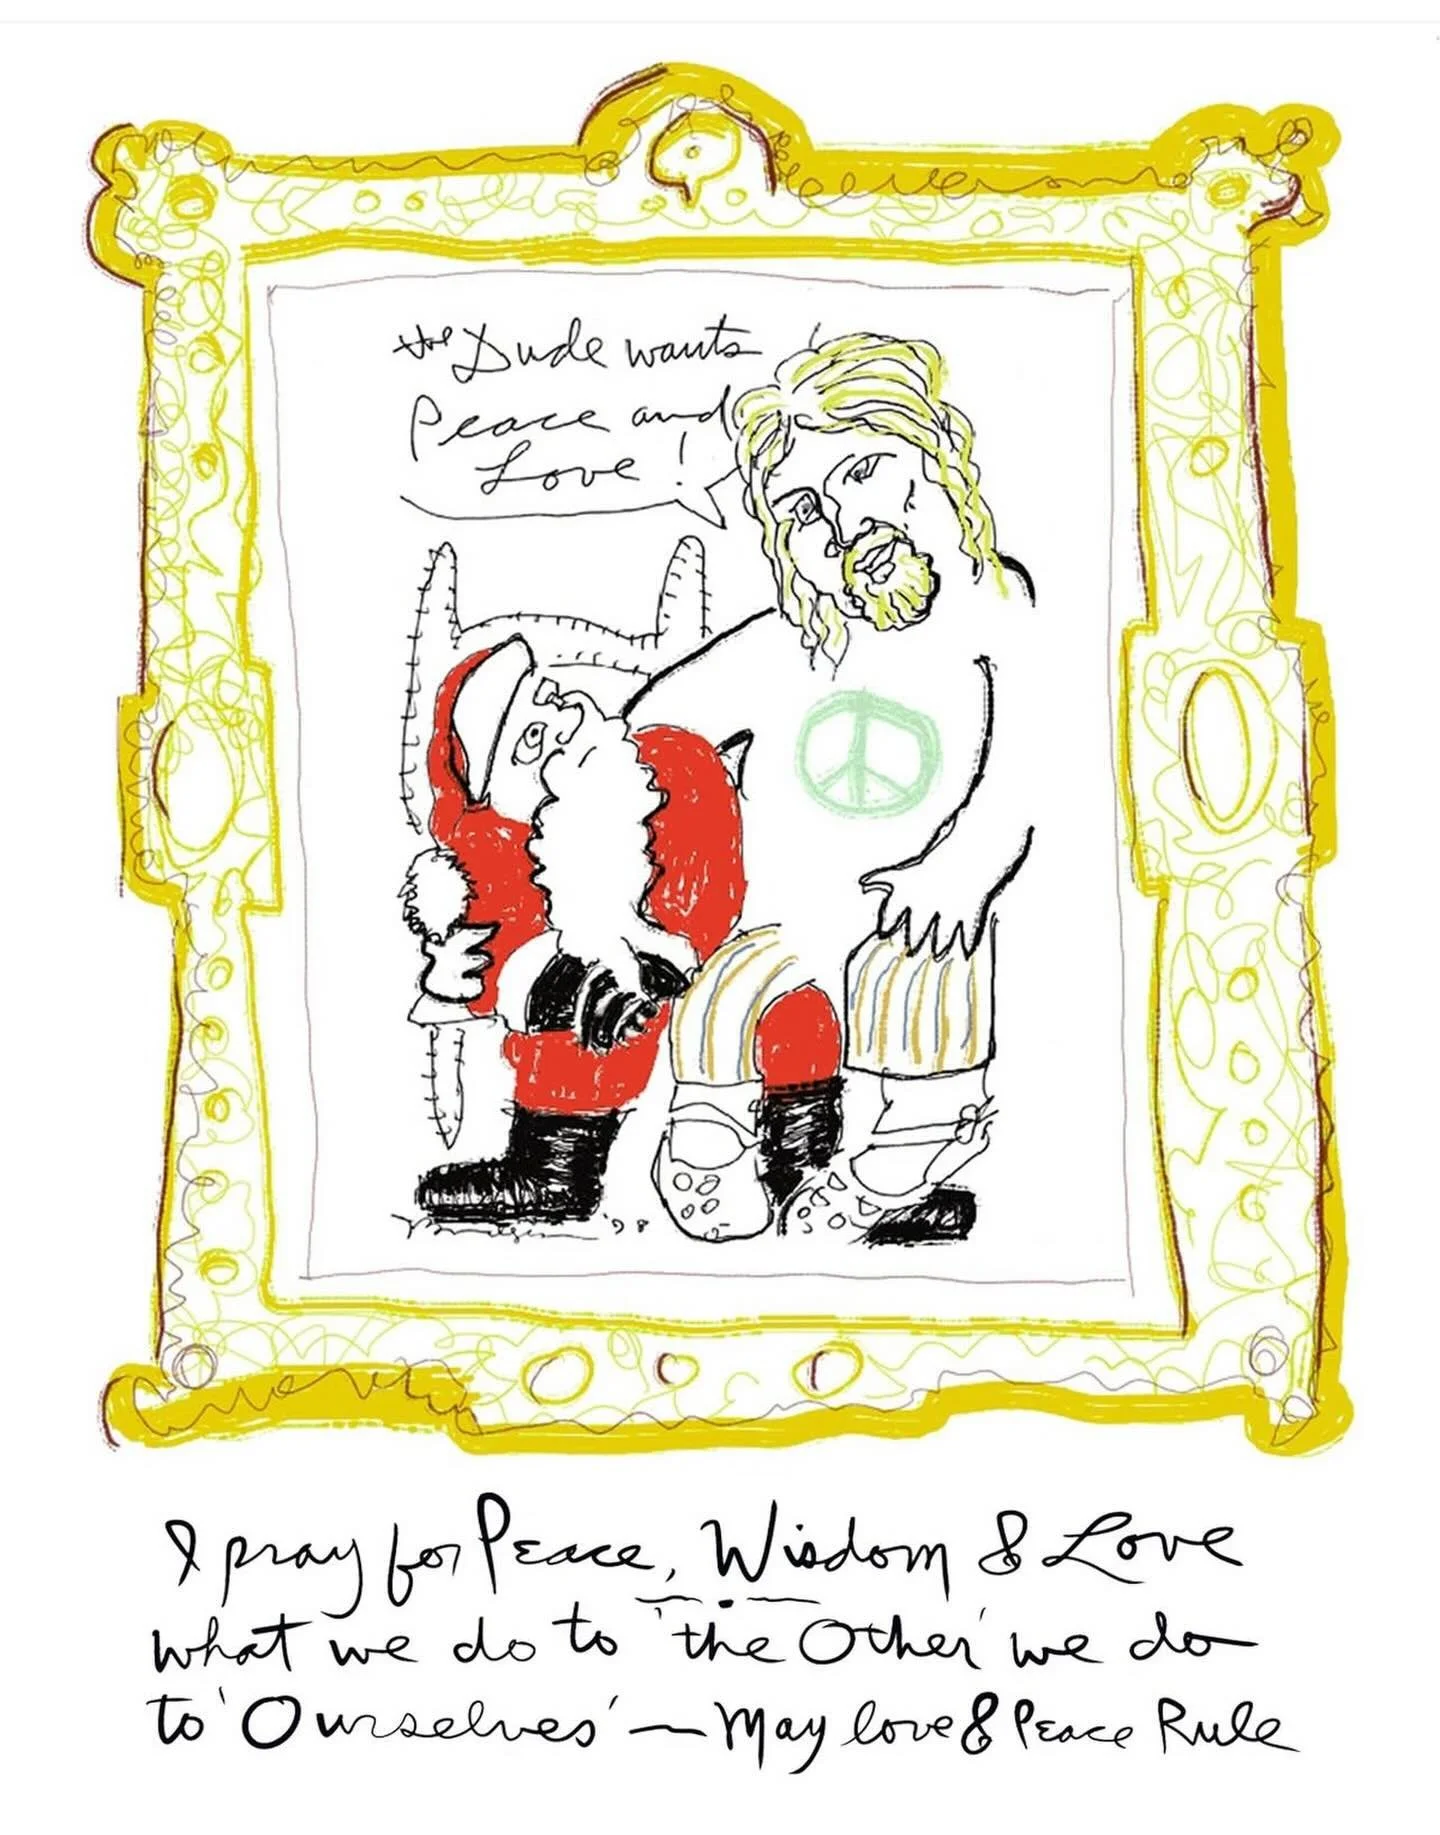 the Dude wants
Peace and
Love!
'98
I pray for Peace, Wisdom & Love
what we do to 'the Other' we do
to 'Ourselves' — May love & Peace Rule